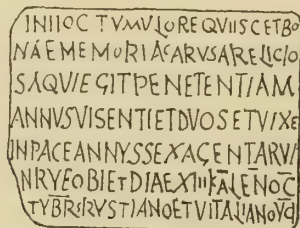 INIIOCTVMVLOREQVIISCETBO
NAEMEMORIACARVSARELIGIO
SAQVIEGITPENETENTIAM
ANNVSVISENTIETDVOSETVIXE
INPACEANNVSSEXAGENTARVI
NRYFOBIETDIAEXIIIKALENOC
TYBRSRVSTIANOETVITALIANOVC